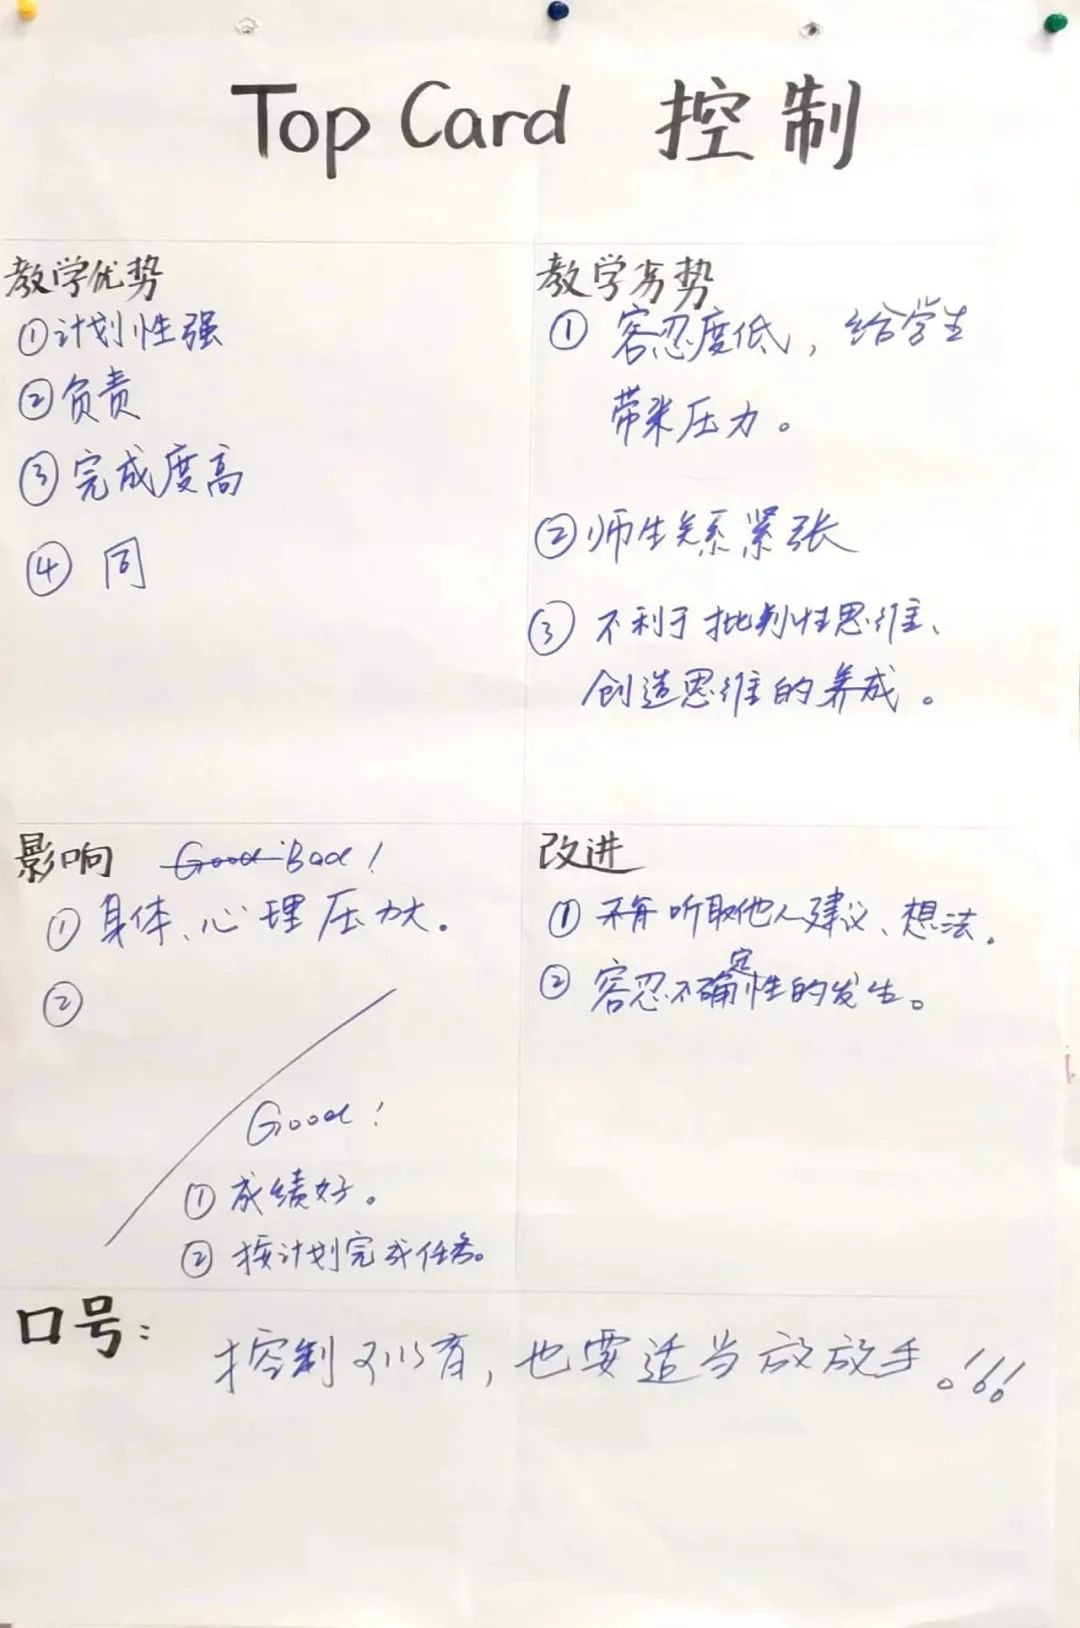 Top Card 控制
教学优势
①计划性强
②负责
③完成度高
④ 同
教学劣势
① 容忍度低，给学生
带来压力。
②师生关系紧张
③ 不利于批判性思维、
创造思维的养成。
影响 Good Bad！
① 身体、心理压力大。
②
Good！
① 成绩好。
② 按计划完成任务。
改进
① 听取他人建议、想法。
② 容忍不确定性的发生。
口号：
控制 有，也要适当放放手。！！！